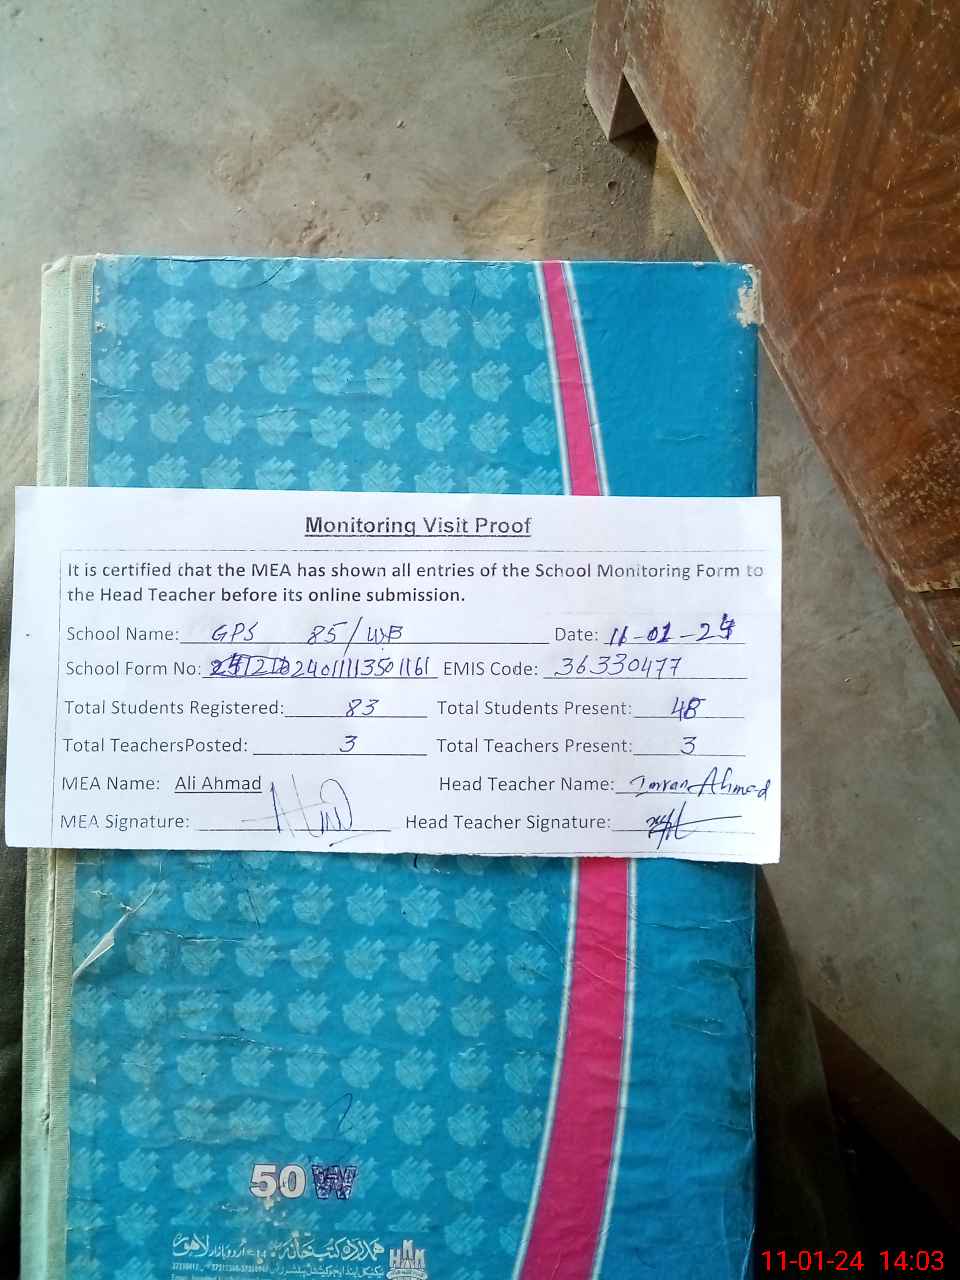 Monitoring Visit Proof
It is certified that the MEA has shown all entries of the School Monitoring Form to
the Head Teacher before its online submission.
School Name: GPS 85/WB Date: 11-01-24
School Form No: 24011113501161 EMIS Code: 36330477
Total Students Registered: 83 Total Students Present: 48
Total TeachersPosted: 3 Total Teachers Present: 3
MEA Name: Ali Ahmad Head Teacher Name: Imran Ahmed
MEA Signature: Head Teacher Signature:
50 W
ہمدرد کتب خانہ اُردو بازار لاہور
HKK
11-01-24 14:03